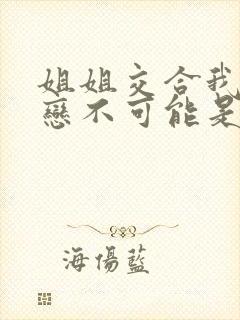 姐姐交合我
戀不可能是
海傷藍